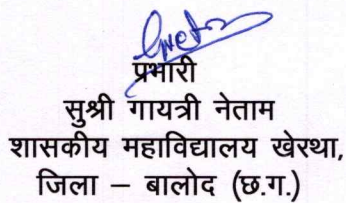 प्रभारी
सुश्री गायत्री नेताम
शासकीय महाविद्यालय खेरथा,
जिला – बालोद (छ.ग.)